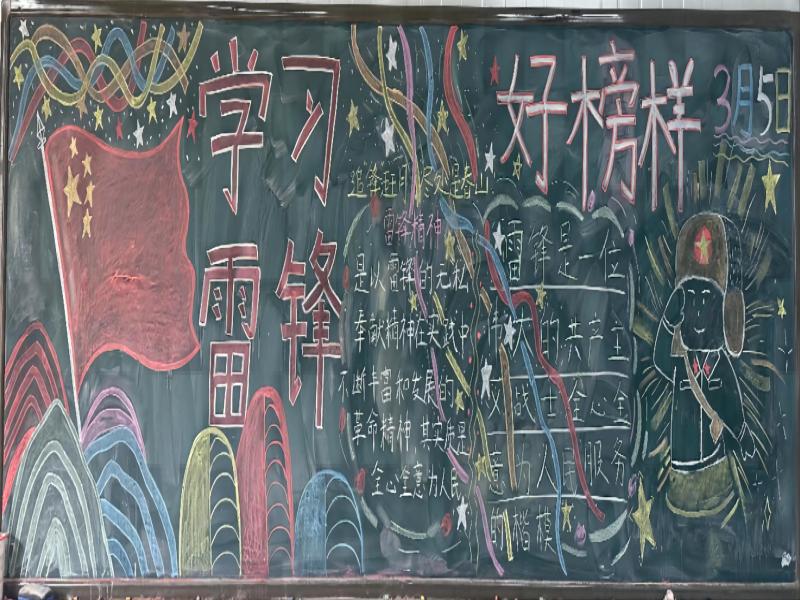 学习
雷锋
好榜样
3月5日
雷锋精神
是以雷锋的无私
奉献精神在实践中
不断丰富和发展的
革命精神 其实质是
全心全意为人民
雷锋是一位
伟大的共产主
义战士全心全
意为人民服务
的楷模